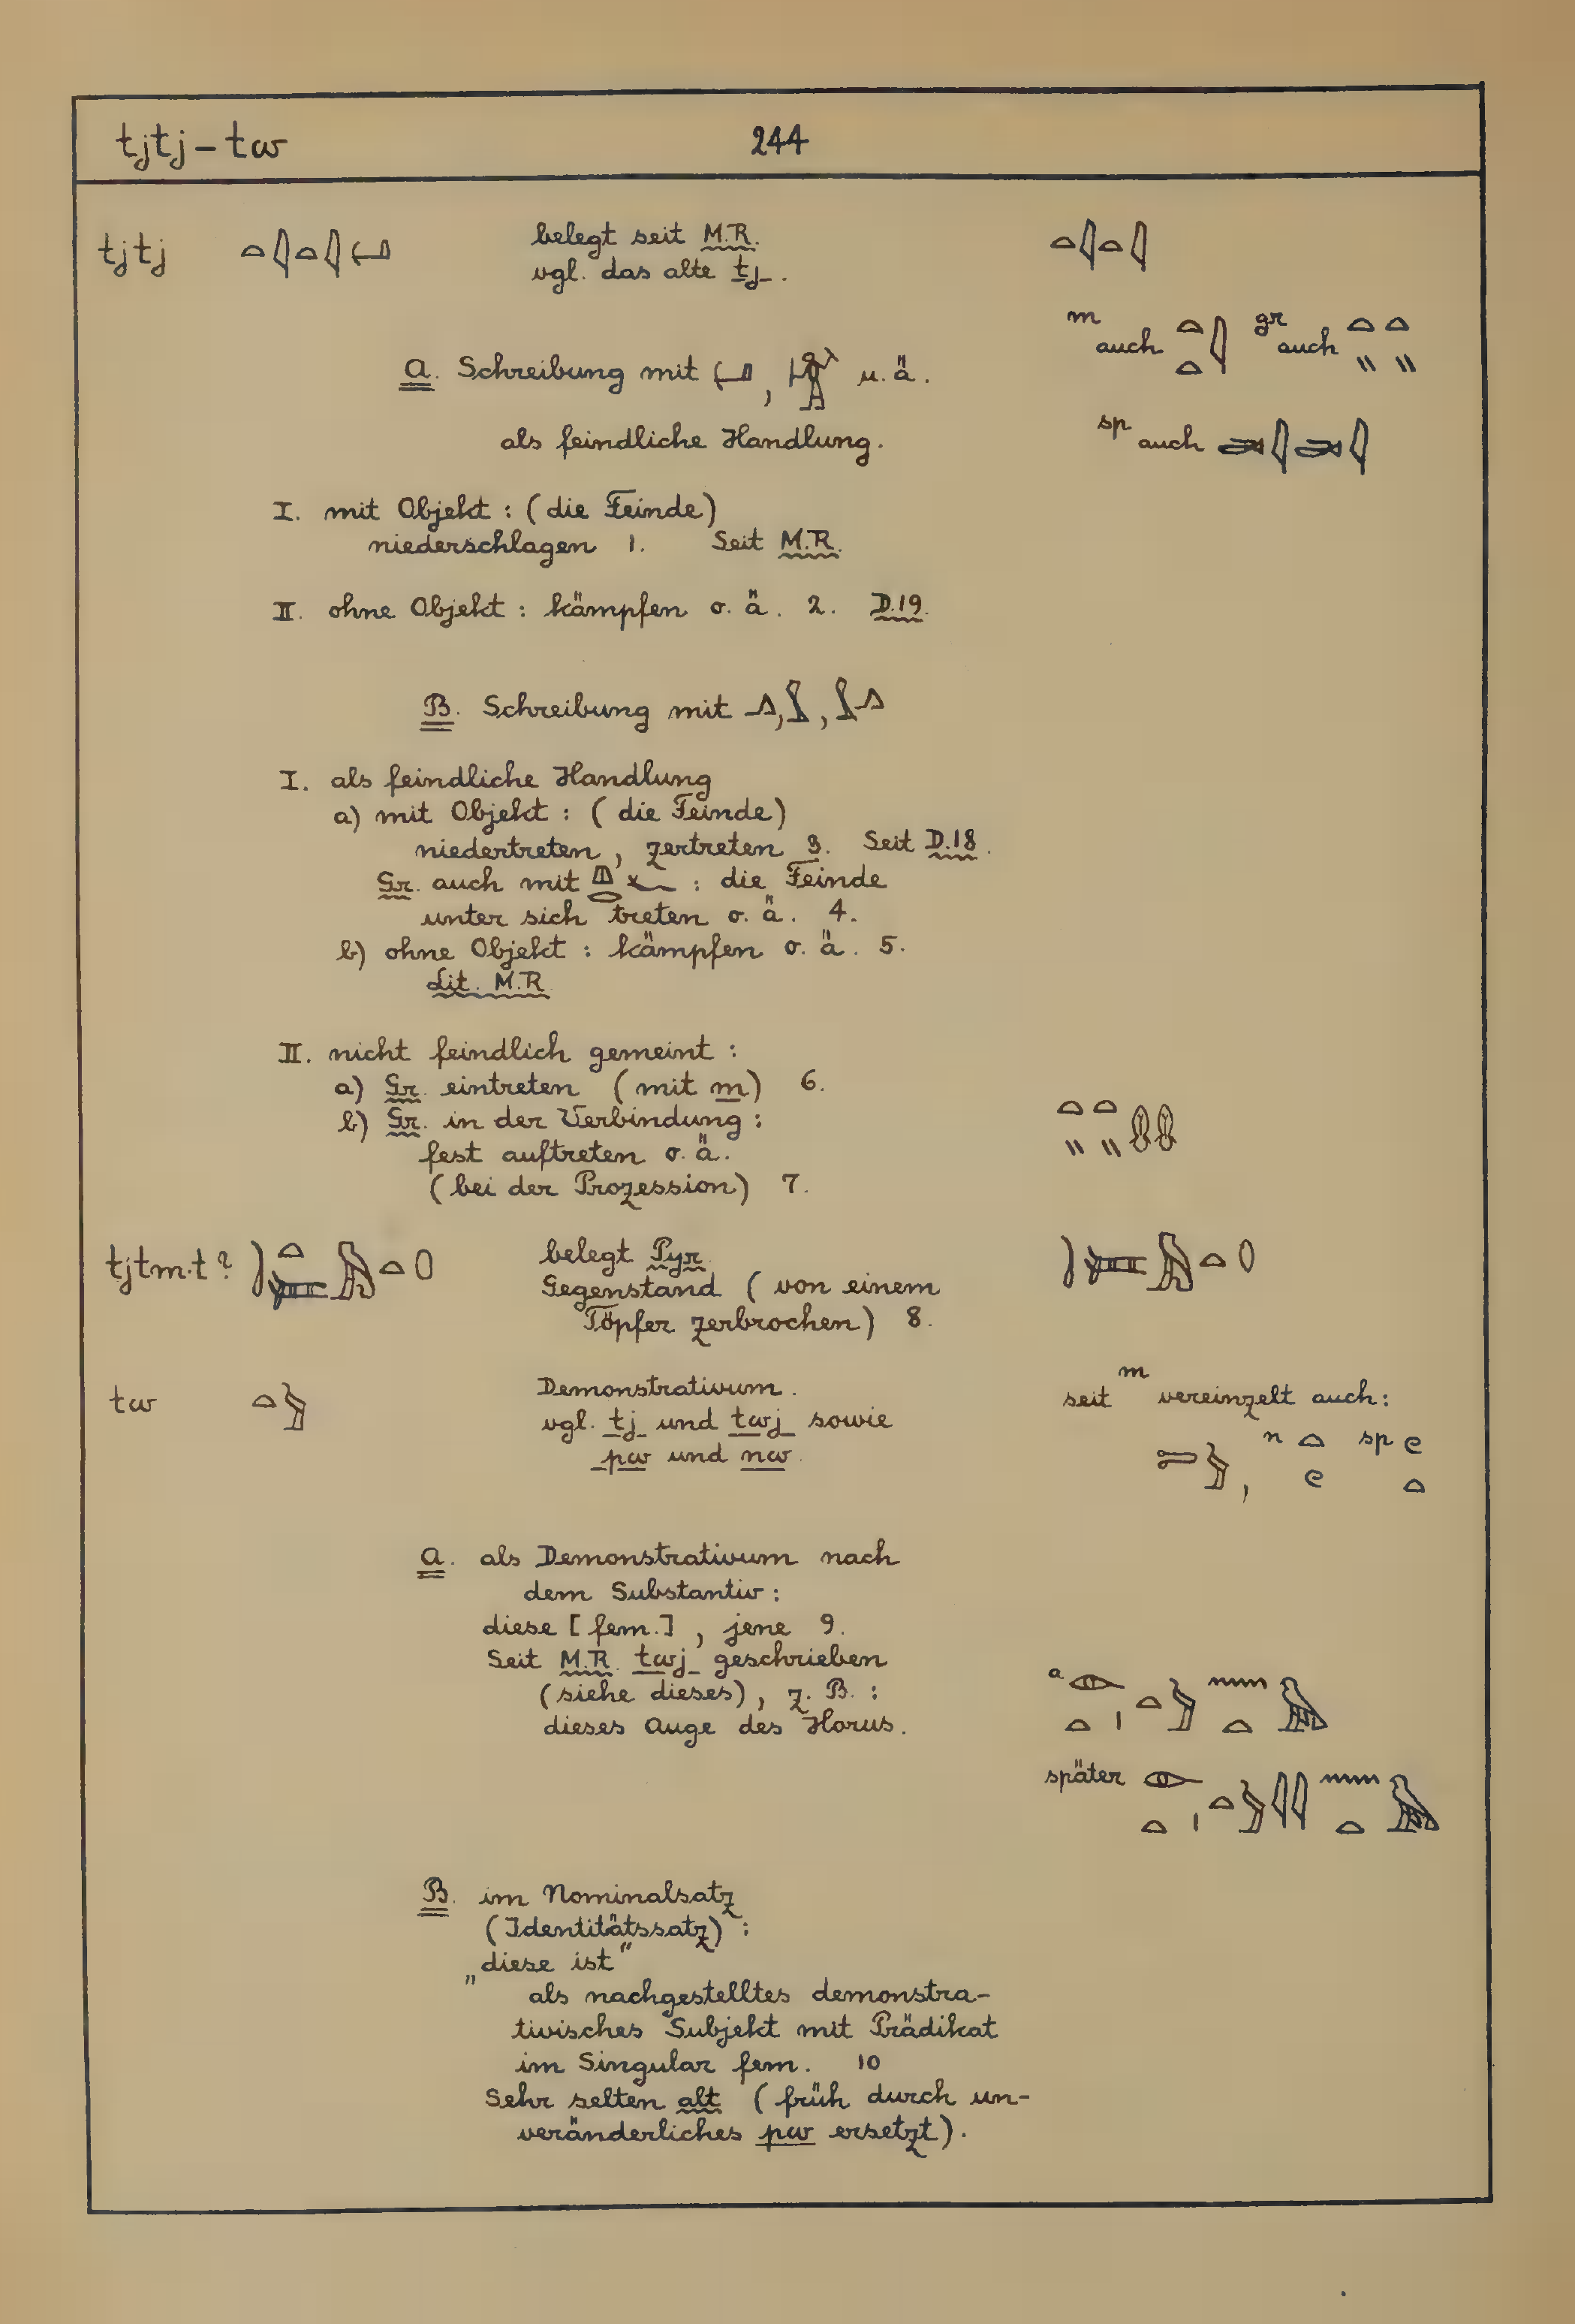 tjtj – tw 244
tjtj belegt seit M.R.
vgl. das alte tj.
m auch gr auch
A. Schreibung mit , u. ä.
als feindliche Handlung.
sp auch
I. mit Objekt : (die Feinde)
niederschlagen 1. Seit M.R.
II. ohne Objekt : kämpfen o. ä. 2. D.19.
B. Schreibung mit , ,
I. als feindliche Handlung
a) mit Objekt : (die Feinde)
niedertreten, zertreten 3. Seit D.18.
Gr. auch mit : die Feinde
unter sich treten o. ä. 4.
b) ohne Objekt : kämpfen o. ä. 5.
Lit. M.R.
II. nicht feindlich gemeint :
a) Gr. eintreten (mit m) 6.
b) Gr. in der Verbindung :
fest auftreten o. ä.
(bei der Prozession) 7.
tjtm.t? belegt Pyr.
Gegenstand (von einem
Töpfer zerbrochen) 8.
tw Demonstrativum.
vgl. tj und twj sowie
pw und nw.
seit m vereinzelt auch:
, n sp
A. als Demonstrativum nach
dem Substantiv :
diese [fem.], jene 9.
Seit M.R. twj geschrieben
(siehe dieses), z. B. :
dieses Auge des Horus.
a
später
B. im Nominalsatz
(Identitätssatz) :
„diese ist“
als nachgestelltes demonstra-
tivisches Subjekt mit Prädikat
im Singular fem. 10
Sehr selten alt (früh durch un-
veränderliches pw ersetzt).